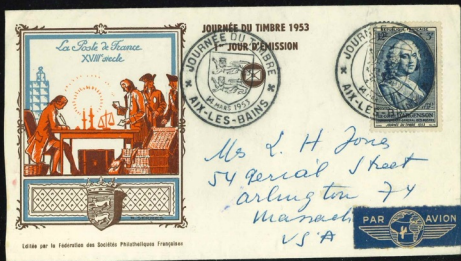 La Poste de France
XVIIIe siècle
JOURNÉE DU TIMBRE 1953
1er JOUR D'ÉMISSION
JOURNÉE DU TIMBRE
14 MARS 1953
AIX-LES-BAINS
JOURNÉE
AIX-LES-BAINS
D'ARGENSON
JOURNÉE DU TIMBRE 1953
L H Jones
54 Aerial Street
Arlington 74
Massach
USA
PAR AVION
Éditée par la Fédération des Sociétés Philatéliques Françaises